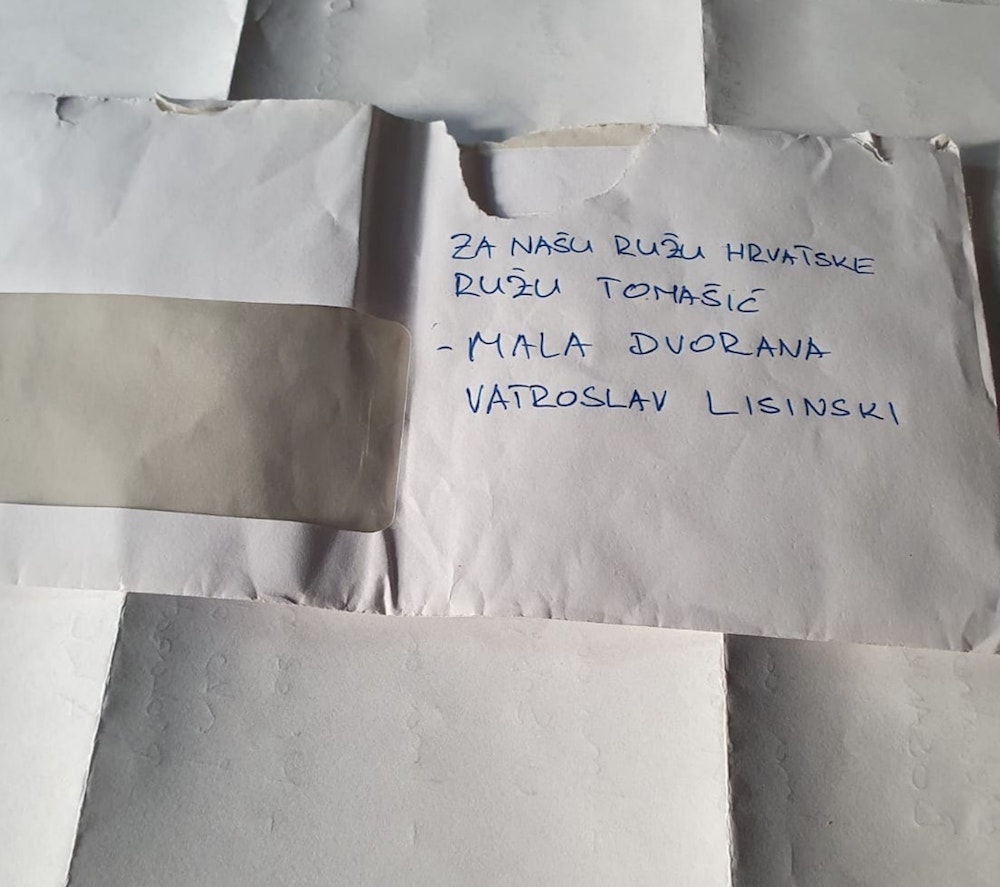 ZA NAŠU RUŽU HRVATSKE
RUŽU TOMAŠIĆ
- MALA DVORANA
VATROSLAV LISINSKI